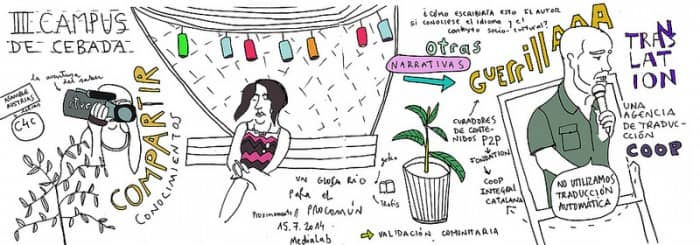 III CAMPUS
DE CEBADA
la aventura del saber
C4C
tve
COMPARTIR
CONOCIMIENTOS
UN GLOSARIO
PARA EL
PROCOMÚN
Próximamente
15.7.2014
MediaLab
¿CÓMO ESCRIBIRÍA ESTO EL AUTOR
SI CONOCIESE EL IDIOMA Y EL
CONTEXTO SOCIO-CULTURAL?
otras
NARRATIVAS
GUERRILLA
TRANSLATION
CURADORES
DE CONTENIDOS
P2P
FOUNDATION
COOP
INTEGRAL
CATALANA
VALIDACIÓN COMUNITARIA
NO UTILIZAMOS
TRADUCCIÓN
AUTOMÁTICA
UNA
AGENCIA
DE TRADUCCIÓN
COOP